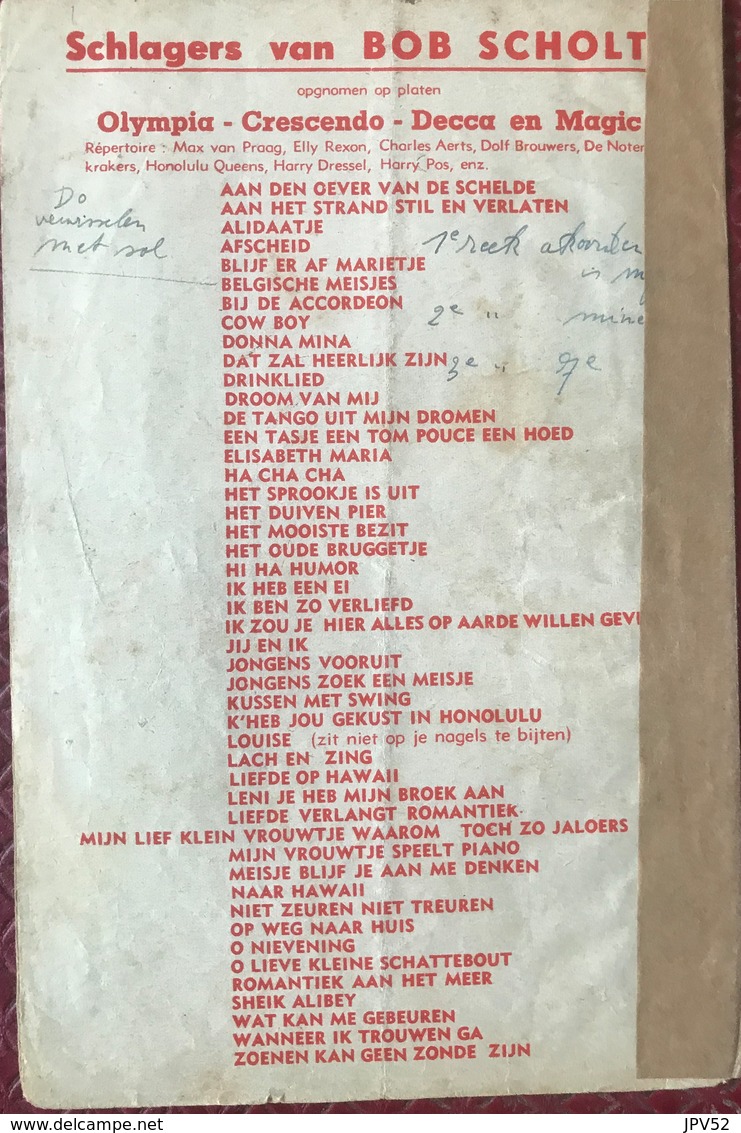 Schlagers van BOB SCHOLT
opgnomen op platen
Olympia - Crescendo - Decca en Magic
Répertoire : Max van Praag, Elly Rexon, Charles Aerts, Dolf Brouwers, De Noten
krakers, Honolulu Queens, Harry Dressel, Harry Pos, enz.
Do
verwisselen
met sol
AAN DEN OEVER VAN DE SCHELDE
AAN HET STRAND STIL EN VERLATEN
ALIDAATJE
AFSCHEID
1e reek akoorden
BLIJF ER AF MARIETJE
is m
BELGISCHE MEISJES
BIJ DE ACCORDEON
COW BOY
2e " mine
DONNA MINA
DAT ZAL HEERLIJK ZIJN
3e " 7e
DRINKLIED
DROOM VAN MIJ
DE TANGO UIT MIJN DROMEN
EEN TASJE EEN TOM POUCE EEN HOED
ELISABETH MARIA
HA CHA CHA
HET SPROOKJE IS UIT
HET DUIVEN PIER
HET MOOISTE BEZIT
HET OUDE BRUGGETJE
HI HA HUMOR
IK HEB EEN EI
IK BEN ZO VERLIEFD
IK ZOU JE HIER ALLES OP AARDE WILLEN GEV
JIJ EN IK
JONGENS VOORUIT
JONGENS ZOEK EEN MEISJE
KUSSEN MET SWING
K'HEB JOU GEKUST IN HONOLULU
LOUISE (zit niet op je nagels te bijten)
LACH EN ZING
LIEFDE OP HAWAII
LENI JE HEB MIJN BROEK AAN
LIEFDE VERLANGT ROMANTIEK
MIJN LIEF KLEIN VROUWTJE WAAROM TOCH ZO JALOERS
MIJN VROUWTJE SPEELT PIANO
MEISJE BLIJF JE AAN ME DENKEN
NAAR HAWAII
NIET ZEUREN NIET TREUREN
OP WEG NAAR HUIS
O NIEVENING
O LIEVE KLEINE SCHATTEBOUT
ROMANTIEK AAN HET MEER
SHEIK ALIBEY
WAT KAN ME GEBEUREN
WANNEER IK TROUWEN GA
ZOENEN KAN GEEN ZONDE ZIJN
delcampe.net
JPV52